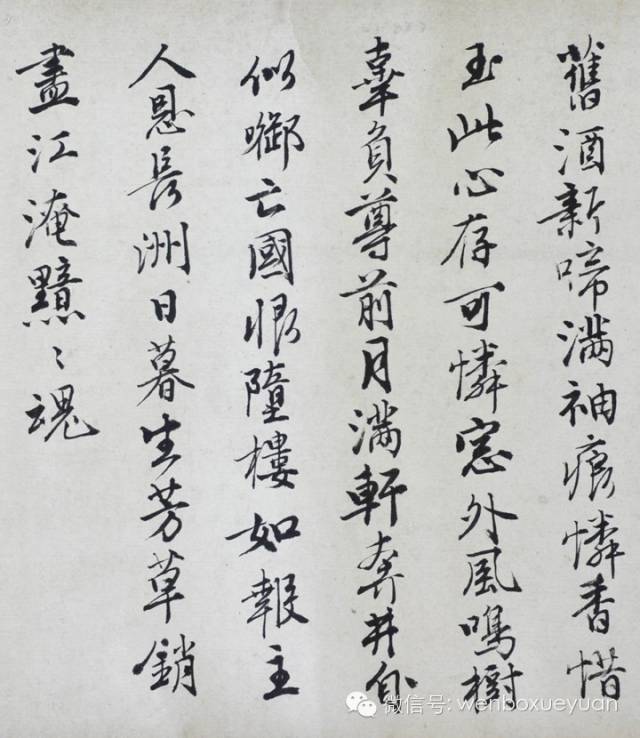 舊酒新啼滿袖痕憐香惜
玉此心存可憐窓外風鳴樹
辜負尊前月滿軒奔井自
似啣亡國恨墮樓如報主
人恩長洲日暮生芳草銷
盡江淹黯〻魂
微信号: wenboxueyuan